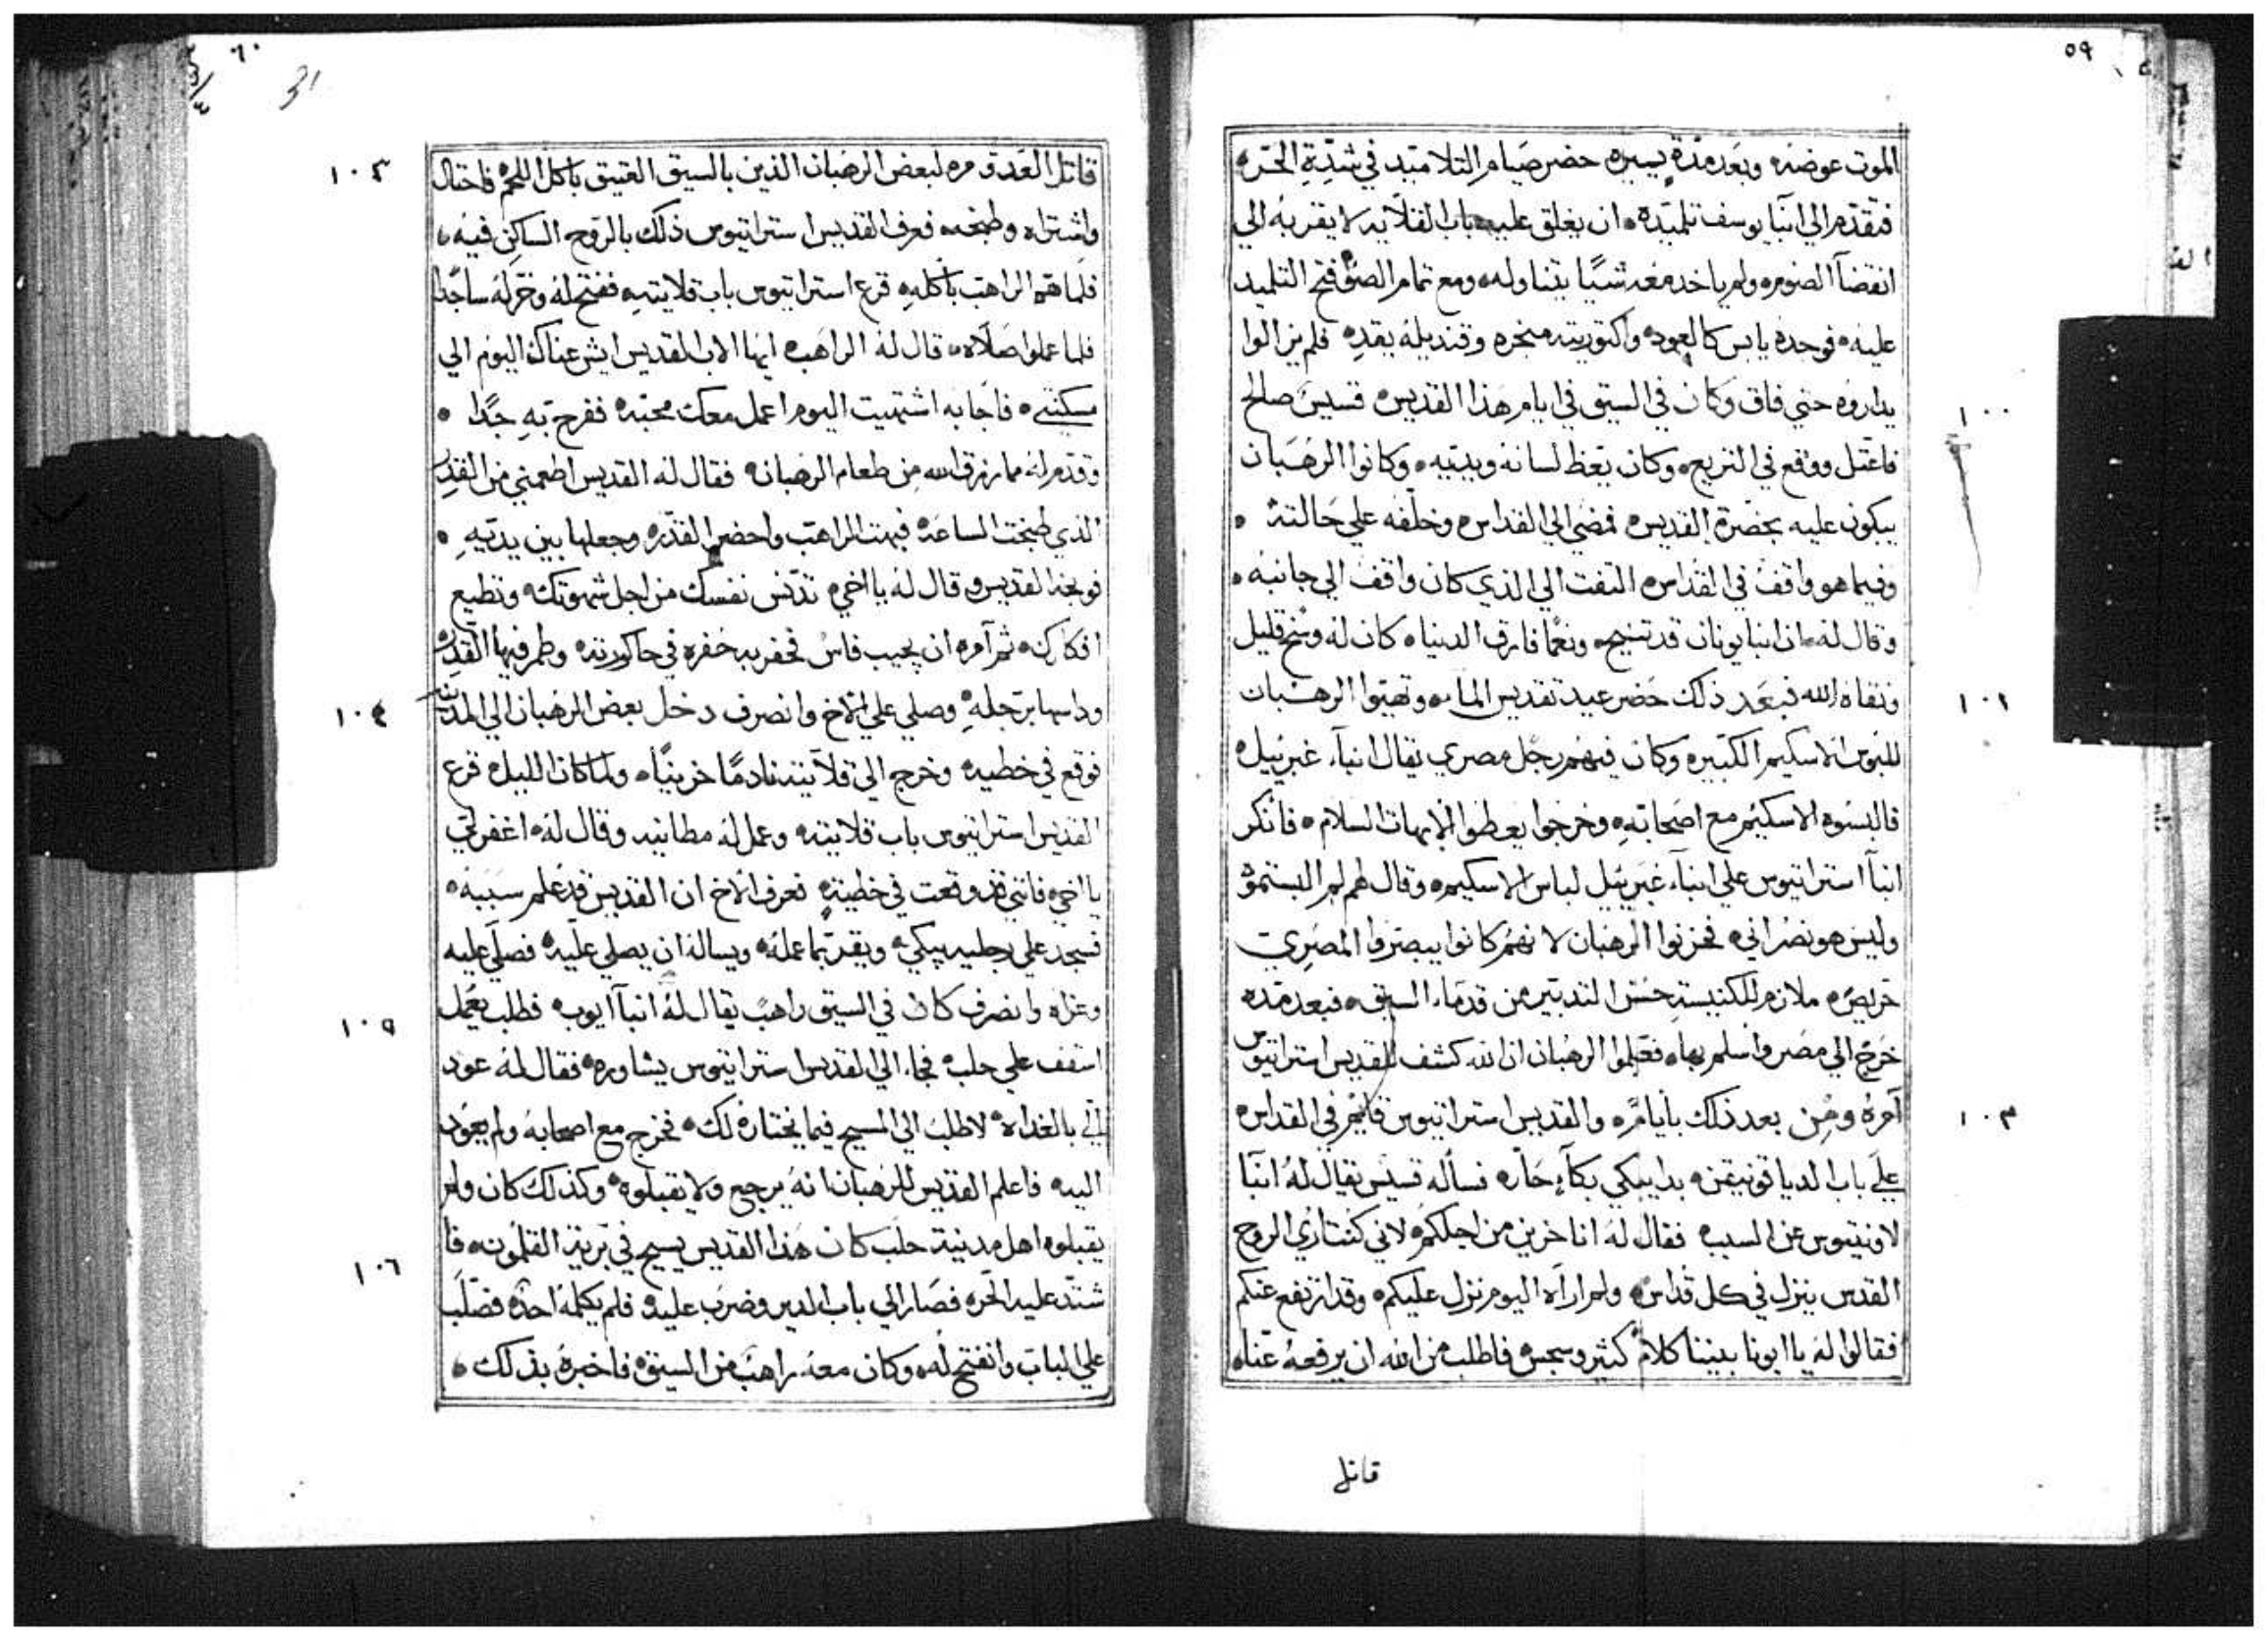 ٥٩
الموت عوضه وبعد مدة يسيره حضر صيام التلاميد في شدة الحر
فتقدم الي انبا يوسف تلميده ان يغلق عليه باب القلايه لا يقربه الي
انقضآ الصوم ولم ياخد معه شيًا يتناوله ومع تمام الصوم فتح التلميد
عليه فوجده يابس كالعود واكتوريته منجره وقنديله يقد فلم يزالوا
يداروه حتي فاق وكان في السيق في ايام هذا القديس قسيس صالح
١٠٠
فاعتل ووقع في النزيع وكان يعظ لسانه ويديه وكانوا الرهبان
يبكون عليه بحضرة القديس فمضي الي القداس وخلفه علي حالته
وفيما هو واقف في القداس التفت الي الذي كان واقف الي جانبه
وقال له ان انبا يونان قد تنيح ونعما فارق الدنيا كان له وسخ قليل
ونقاه الله فبعد ذلك حضر عيد تقديس الما وتهيوا الرهبان
١٠١
للبوس الاسكيم الكبير وكان فيهم رجل مصري يقال انبآ غبرييل
فالبسوه الاسكيم مع اصحابه وخرجوا يعطوا الابهات السلام فانكر
انبآ استراتيوس علي انبآ غبرييل لباس الاسكيم وقال لهم لم البستموه
وليس هو نصراني فحزنوا الرهبان لانهم كانوا يبصروا المصري
حريص ملازم للكنيسة حسن التدبير من قدمآ السيق فبعد مده
خرج الي مصر واسلم بها فعلموا الرهبان ان الله كشف للقديس استراتيوس
امره ومن بعد ذلك بايام والقديس استراتيوس قايم في القداس
١٠٢
علي باب الدياقونيقن بدا يبكي بكآء حار فساله قسيس يقال له انبا
لاونتيوس عن السبب فقال له انا حزين من اجلكم لاني كنت ارى الروح
القدس ينزل في كل قداس ولم اراه اليوم نزل عليكم وقد ارتفع عنكم
فقالوا له يا ابونا بيننا كلام كثير وسجس فاطلب من الله ان يرفعه عنا
قاتل
٦٠
31
قاتل العدو مره لبعض الرهبان الذين بالسيق العتيق باكل اللحم فاحتال
١٠٣
واشتراه وطبخه فعرف القديس استراتيوس ذلك بالروح الساكن فيه
فلما هم الراهب باكله قرع استراتيوس باب قلايته ففتح له وخر له ساجدًا
فلما عملوا صلاه قال له الراهب ايها الاب القديس ايش عناك اليوم الي
مسكنتي فاجابه اشتهيت اليوم اعمل معك محبه ففرح به جدًا
وقدم له مما رزق الله من طعام الرهبان فقال له القديس اطعمني من القدر
الذي طبخت الساعة فبهت الراهب واحضر القدر وجعلها بين يديه
فوبخه القديس وقال له يا اخي تدنس نفسك من اجل شهوتك وتطيع
افكارك ثم آمره ان يجيب فاس فحفر به حفره في حاكورته وطمر فيها القدر
وداسها برجله وصلي علي الاخ وانصرف دخل بعض الرهبان الي المدينه
١٠٤
فوقع في خطيه وخرج الي قلايته نادمًا حزينًا ولما كان الليل قرع
القديس استراتيوس باب قلايته وعمل له مطانيه وقال له اغفر لي
يا اخي فانني قد وقعت في خطية فعرف الاخ ان القديس قد علم سببه
فسجد علي رجليه يبكي ويقر بما عمله ويساله ان يصلي عليه فصلي عليه
وعزاه وانصرف كان في السيق راهب يقال له انبآ ايوب فطلب يعمل
١٠٥
اسقف علي حلب فجاء الي القديس استراتيوس يشاوره فقال له عود
الي بالغداه لاطلب الي المسيح فيما يختاره لك فخرج مع اصحابه ولم يعود
اليه فاعلم القديس للرهبان انه يرجع ولا يقبلوه وكذلك كان ولم
يقبلوه اهل مدينة حلب كان هذا القديس يسيح في برية القلمون فا
١٠٦
شتد عليه الحر فصار الي باب الدير وضرب عليه فلم يكلمه احد فصلب
علي الباب وانفتح له وكان معه راهب من السيق فاخبره بذلك